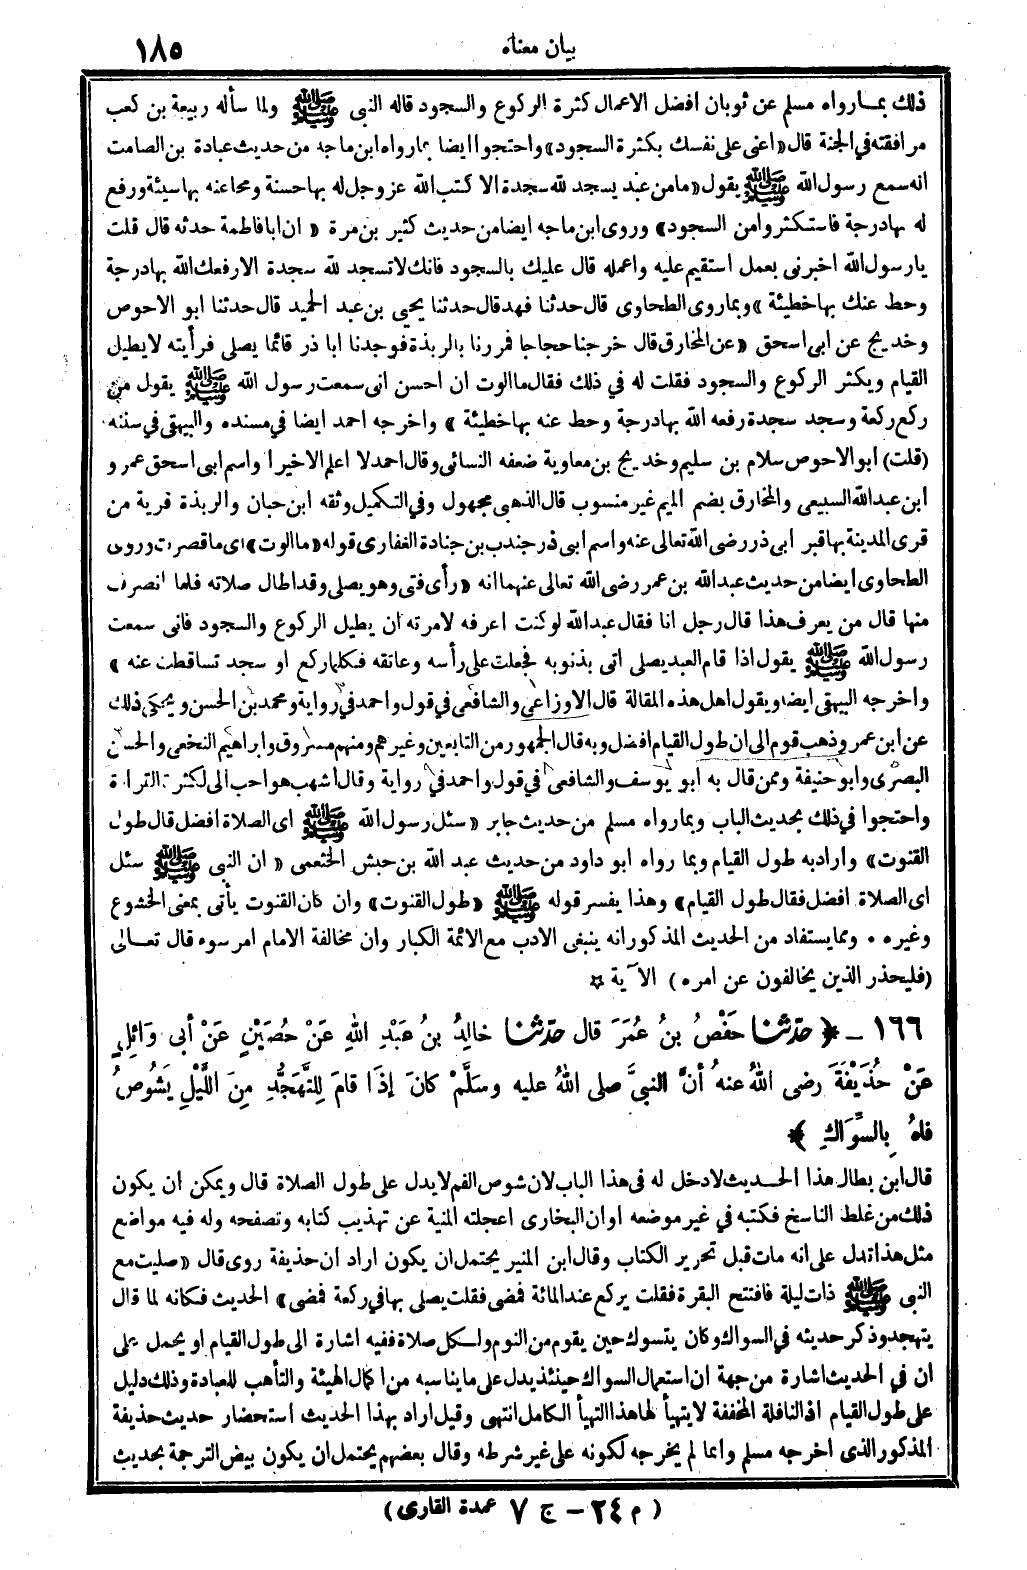 بيان معناه ١٨٥
ذلك بما رواه مسلم عن ثوبان افضل الاعمال كثرة الركوع والسجود قاله النبى ﷺ ولما سأله ربيعة بن كعب
مرافقته فى الجنة قال «اعنى على نفسك بكثرة السجود» واحتجوا ايضا بما رواه ابن ماجه من حديث عبادة بن الصامت
انه سمع رسول الله ﷺ يقول «ما من عبد يسجد لله سجدة الا كتب الله عز وجل له بها حسنة ومحا عنه بها سيئة ورفع
له بها درجة فاستكثروا من السجود» وروى ابن ماجه ايضا من حديث كثير بن مرة «ان ابا فاطمة حدثه قال قلت
يا رسول الله اخبرنى بعمل استقيم عليه واعمله قال عليك بالسجود فانك لا تسجد لله سجدة الا رفعك الله بها درجة
وحط عنك بها خطيئة» وبما روى الطحاوى قال حدثنا فهد قال حدثنا يحيى بن عبد الحميد قال حدثنا ابو الاحوص
وخديج عن ابى اسحق «عن المخارق قال خرجنا حجاجا فمررنا بالربذة فوجدنا ابا ذر قائما يصلى فرأيته لا يطيل
القيام ويكثر الركوع والسجود فقلت له في ذلك فقال ما الوت ان احسن انى سمعت رسول الله ﷺ يقول من
ركع ركعة وسجد سجدة رفعه الله بها درجة وحط عنه بها خطيئة» واخرجه احمد ايضا في مسنده والبيهقى في سننه
(قلت) ابو الاحوص سلام بن سليم وخديج بن معاوية ضعفه النسائى وقال احمد لا اعلم الا خيرا واسم ابى اسحق عمرو
ابن عبد الله السبيعى والمخارق بضم الميم غير منسوب قال الذهبى مجهول وفي التكميل وثقه ابن حبان والربذة قرية من
قرى المدينة بها قبر ابى ذر رضى الله تعالى عنه واسم ابى ذر جندب بن جنادة الغفارى قوله «ما الوت» اى ما قصرت وروى
الطحاوى ايضا من حديث عبد الله بن عمر رضى الله تعالى عنهما انه «رأى فتى وهو يصلى وقد اطال صلاته فلما انصرف
منها قال من يعرف هذا قال رجل انا فقال عبد الله لو كنت اعرفه لامرته ان يطيل الركوع والسجود فانى سمعت
رسول الله ﷺ يقول اذا قام العبد يصلى اتى بذنوبه فجعلت على رأسه وعاتقه فكلما ركع او سجد تساقطت عنه»
واخرجه البيهقى ايضا ويقول اهل هذه المقالة قال الاوزاعى والشافعى في قول واحمد في رواية ومحمد بن الحسن ويحكى ذلك
عن ابن عمر وذهب قوم الى ان طول القيام افضل وبه قال الجمهور من التابعين وغيرهم ومنهم مسروق وابراهيم النخعى والحسن
البصرى وابو حنيفة وممن قال به ابو يوسف والشافعى في قول واحمد في رواية وقال اشهب هو احب الى لكثرة القراءة
واحتجوا في ذلك بحديث الباب وبما رواه مسلم من حديث جابر «سئل رسول الله ﷺ اى الصلاة افضل قال طول
القنوت» واراد به طول القيام وبما رواه ابو داود من حديث عبد الله بن حبش الخثعمى «ان النبى ﷺ سئل
اى الصلاة افضل فقال طول القيام» وهذا يفسر قوله ﷺ «طول القنوت» وان كان القنوت يأتى بمعنى الخشوع
وغيره ٠٠ ومما يستفاد من الحديث المذكور انه ينبغى الادب مع الائمة الكبار وان مخالفة الامام امر سوء قال تعالى
(فليحذر الذين يخالفون عن امره) الآية ☆
١٦٦ - ﴿ حدّثنا حَفْصُ بنُ عُمَرَ قال حدّثنا خالِدُ بنُ عَبْدِ اللهِ عَنْ حُصَيْنٍ عَنْ أبى وَائِلٍ
عَنْ حُذَيْفَةَ رضى اللهُ عنهُ أنَّ النبىَّ صلى اللهُ عليه وسَلَّمْ كانَ إذَا قامَ لِلتَّهَجُّدِ مِنَ اللَّيْلِ يَشُوصُ
فاهُ بِالسِّوَاكِ ﴾
قال ابن بطال هذا الحديث لا دخل له فى هذا الباب لان شوص الفم لا يدل على طول الصلاة قال ويمكن ان يكون
ذلك من غلط الناسخ فكتبه في غير موضعه او ان البخارى اعجلته المنية عن تهذيب كتابه وتصفحه وله فيه مواضع
مثل هذا تدل على انه مات قبل تحرير الكتاب وقال ابن المنير يحتمل ان يكون اراد ان حذيفة روى قال «صليت مع
النبى ﷺ ذات ليلة فافتتح البقرة فقلت يركع عند المائة فمضى فقلت يصلى بها في ركعة فمضى» الحديث فكانه لما قال
يتهجد وذكر حديثه في السواك وكان يتسوك حين يقوم من النوم ولكل صلاة ففيه اشارة الى طول القيام او يحمل على
ان في الحديث اشارة من جهة ان استعمال السواك حينئذ يدل على ما يناسبه من اكمال الهيئة والتأهب للعبادة وذلك دليل
على طول القيام اذ النافلة المخففة لا يتهيأ لها هذا التهيأ الكامل انتهى وقيل اراد بهذا الحديث استحضار حديث حذيفة
المذكور الذى اخرجه مسلم وانما لم يخرجه لكونه على غير شرطه وقال بعضهم يحتمل ان يكون بيض الترجمة بحديث
(م ٢٤ - ج ٧ عمدة القارى)